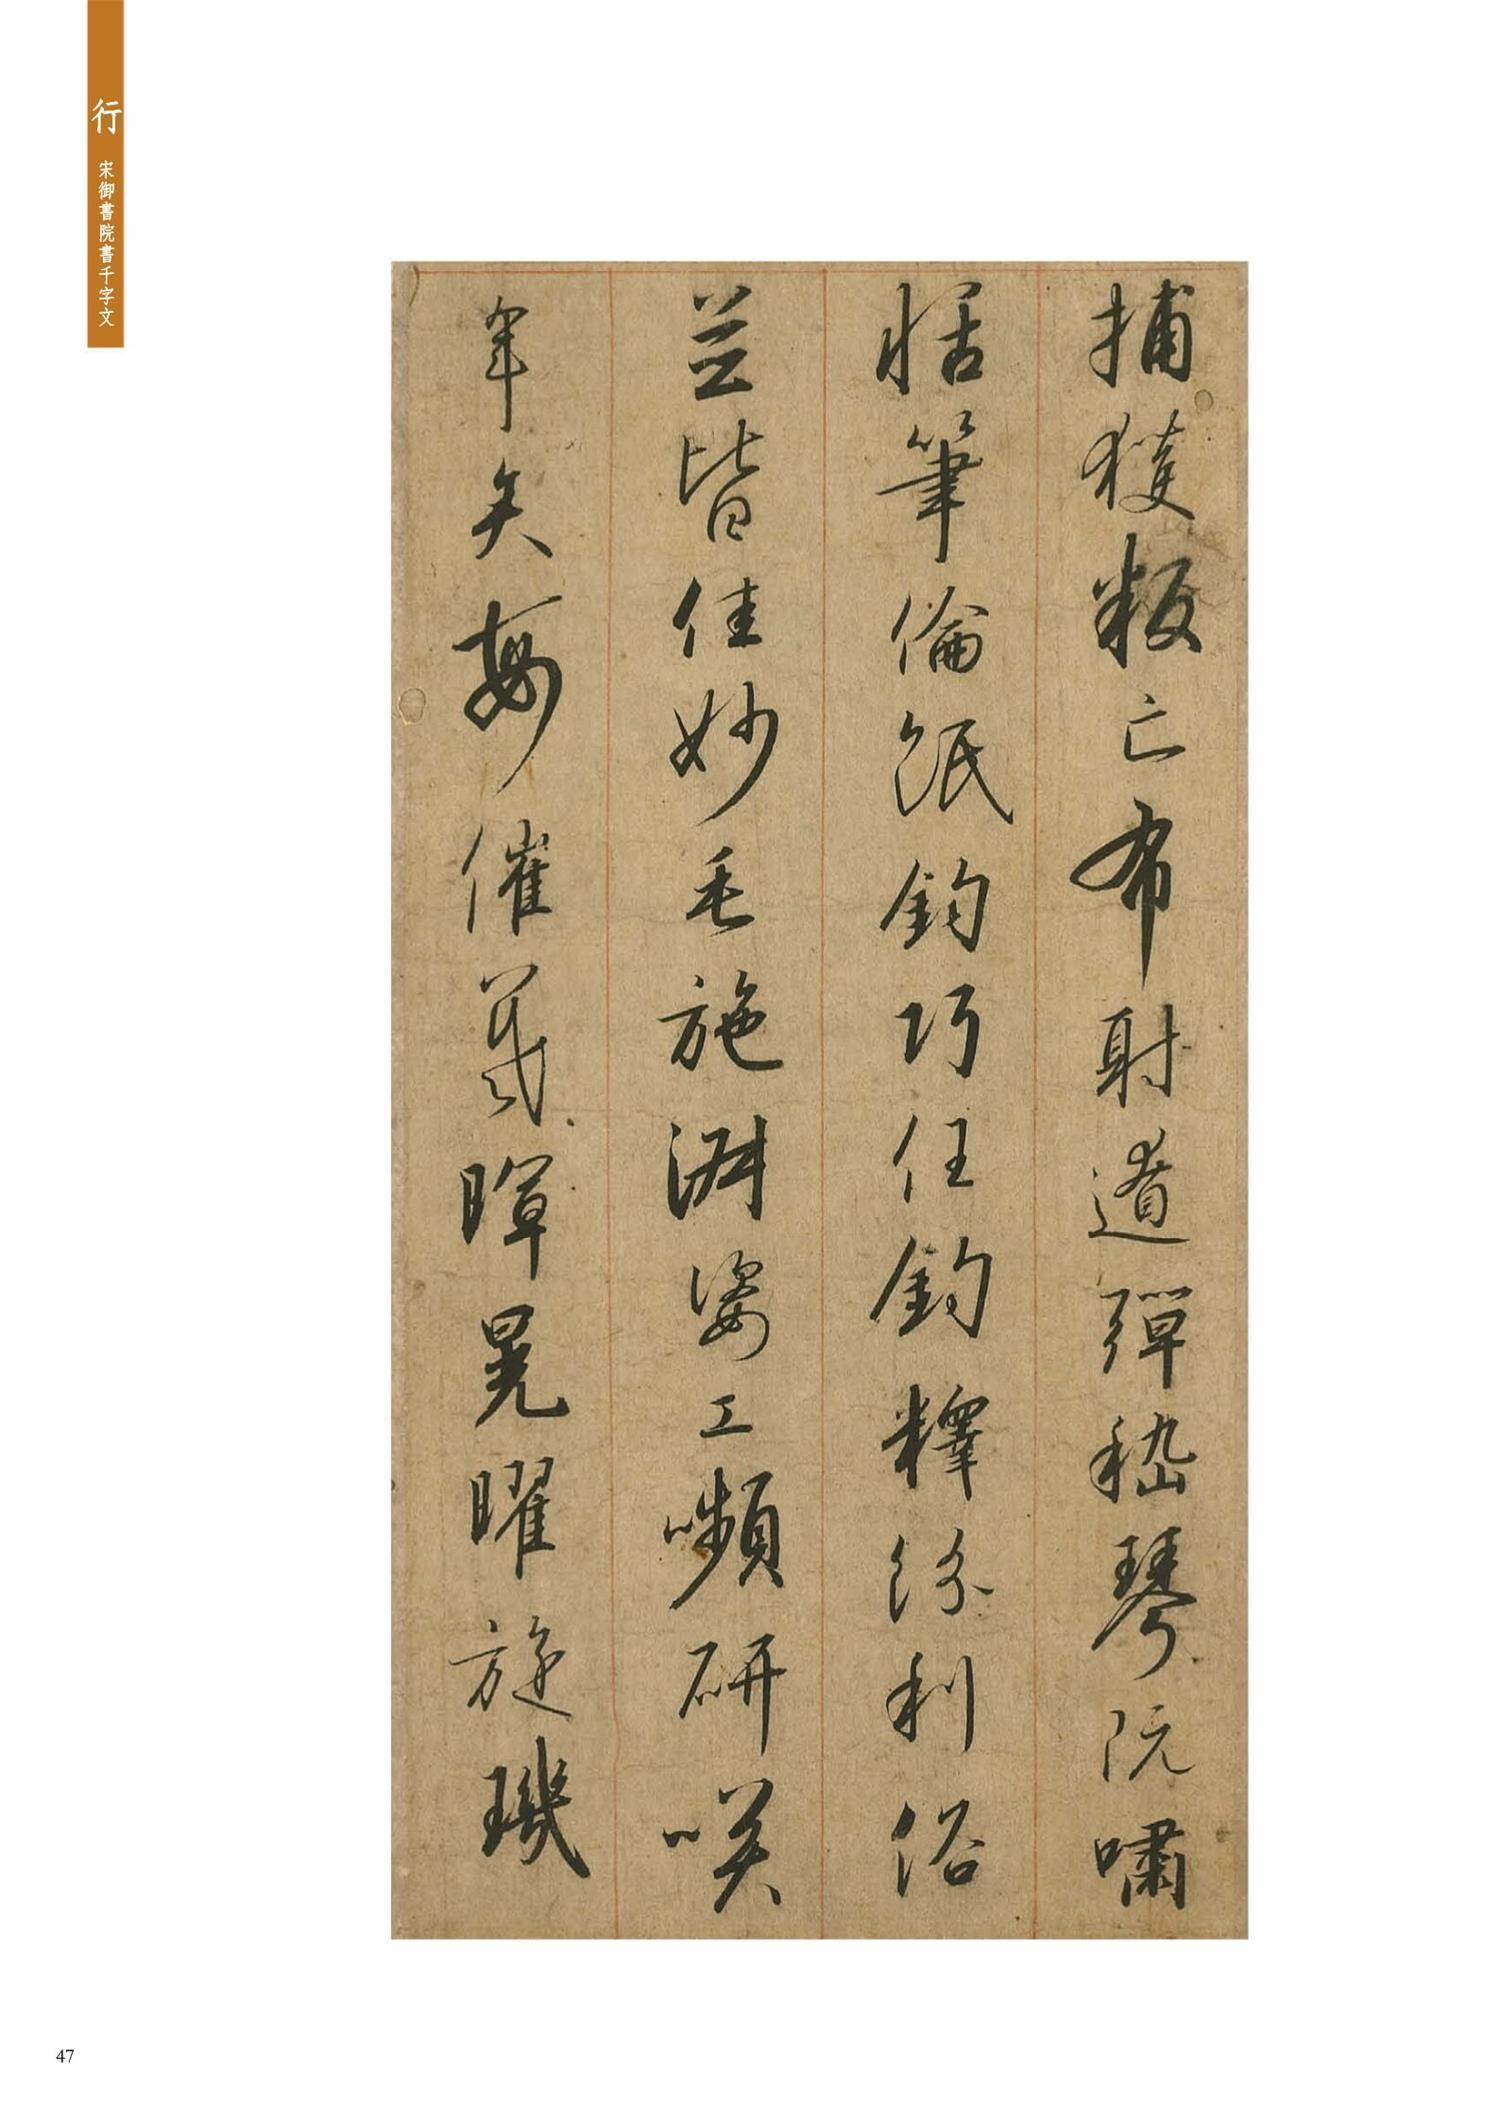 行 宋御書院書千字文
捕獲叛亡布射遼彈嵇琴阮嘯
恬筆倫紙鈞巧任釣釋紛利俗
並皆佳妙毛施淑姿工嚬研咲
年矢每催羲暉晃曜旋璣
47